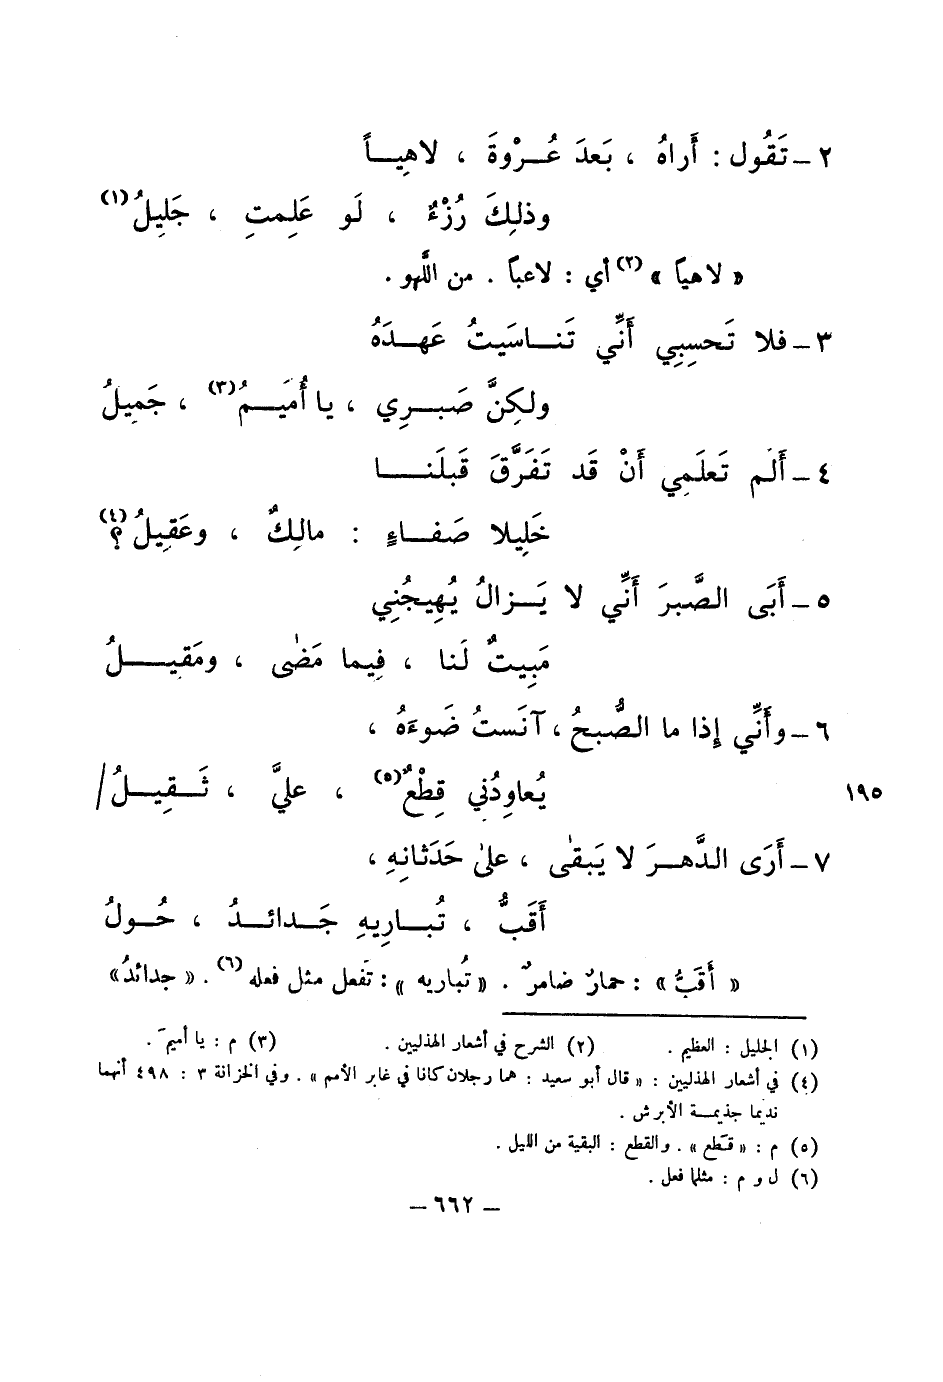 ٢ ــ تَقُول : أَراهُ ، بَعدَ عُــرْوةَ ، لاهِيــاً
وذلِكَ رُزْءٌ ، لَو عَلِمتِ ، جَلِيلُ(١)
« لاهياً »(٢) أي : لاعباً . من اللَّهو .
٣ ــ فلا تَحسِبِي أَنِّي تَنــاسَيتُ عَهــدَهُ
ولكِنَّ صَبــرِي ، يا أُمَيــمُ(٣) ، جَمِيلُ
٤ ــ أَلَم تَعلَمِي أَنْ قَد تَفَرَّقَ قَبلَنــا
خَلِيلا صَفــاءٍ : مالِكٌ ، وعَقِيلُ(٤)؟
٥ ــ أَبَى الصَّبرَ أَنِّي لا يَــزالُ يُهِيجُنِي
مَبِيتٌ لَنا ، فِيما مَضٰى ، ومَقِيــلُ
٦ ــ وأَنِّي إِذا ما الصُّبحُ ، آنَستُ ضَوءَهُ ،
يُعاوِدُني قِطْعٌ(٥) ، عليَّ ، ثَــقِيــلُ/ ١٩٥
٧ ــ أَرَى الدَّهــرَ لا يَبقٰى ، علىٰ حَدَثانِهِ ،
أَقَبُّ ، تُبــارِيهِ جَــدائــدُ ، حُــولُ
« أَقَبُّ » : حمارٌ ضامرٌ . « تُباريه » : تَفعل مثل فعله(٦) . « جدائدُ »
(١) الجليل : العظيم . (٢) الشرح في أشعار الهذليين . (٣) م : يا أميمَ .
(٤) في أشعار الهذليين : « قال أبو سعيد : هما رجلان كانا في غابر الأمم » . وفي الخزانة ٣ : ٤٩٨ أنهما
نديما جذيمــة الأبرش .
(٥) م : « قَطع » . والقطع : البقية من الليل .
(٦) ل و م : مثلما فعل .
ــ ٦٦٢ ــ